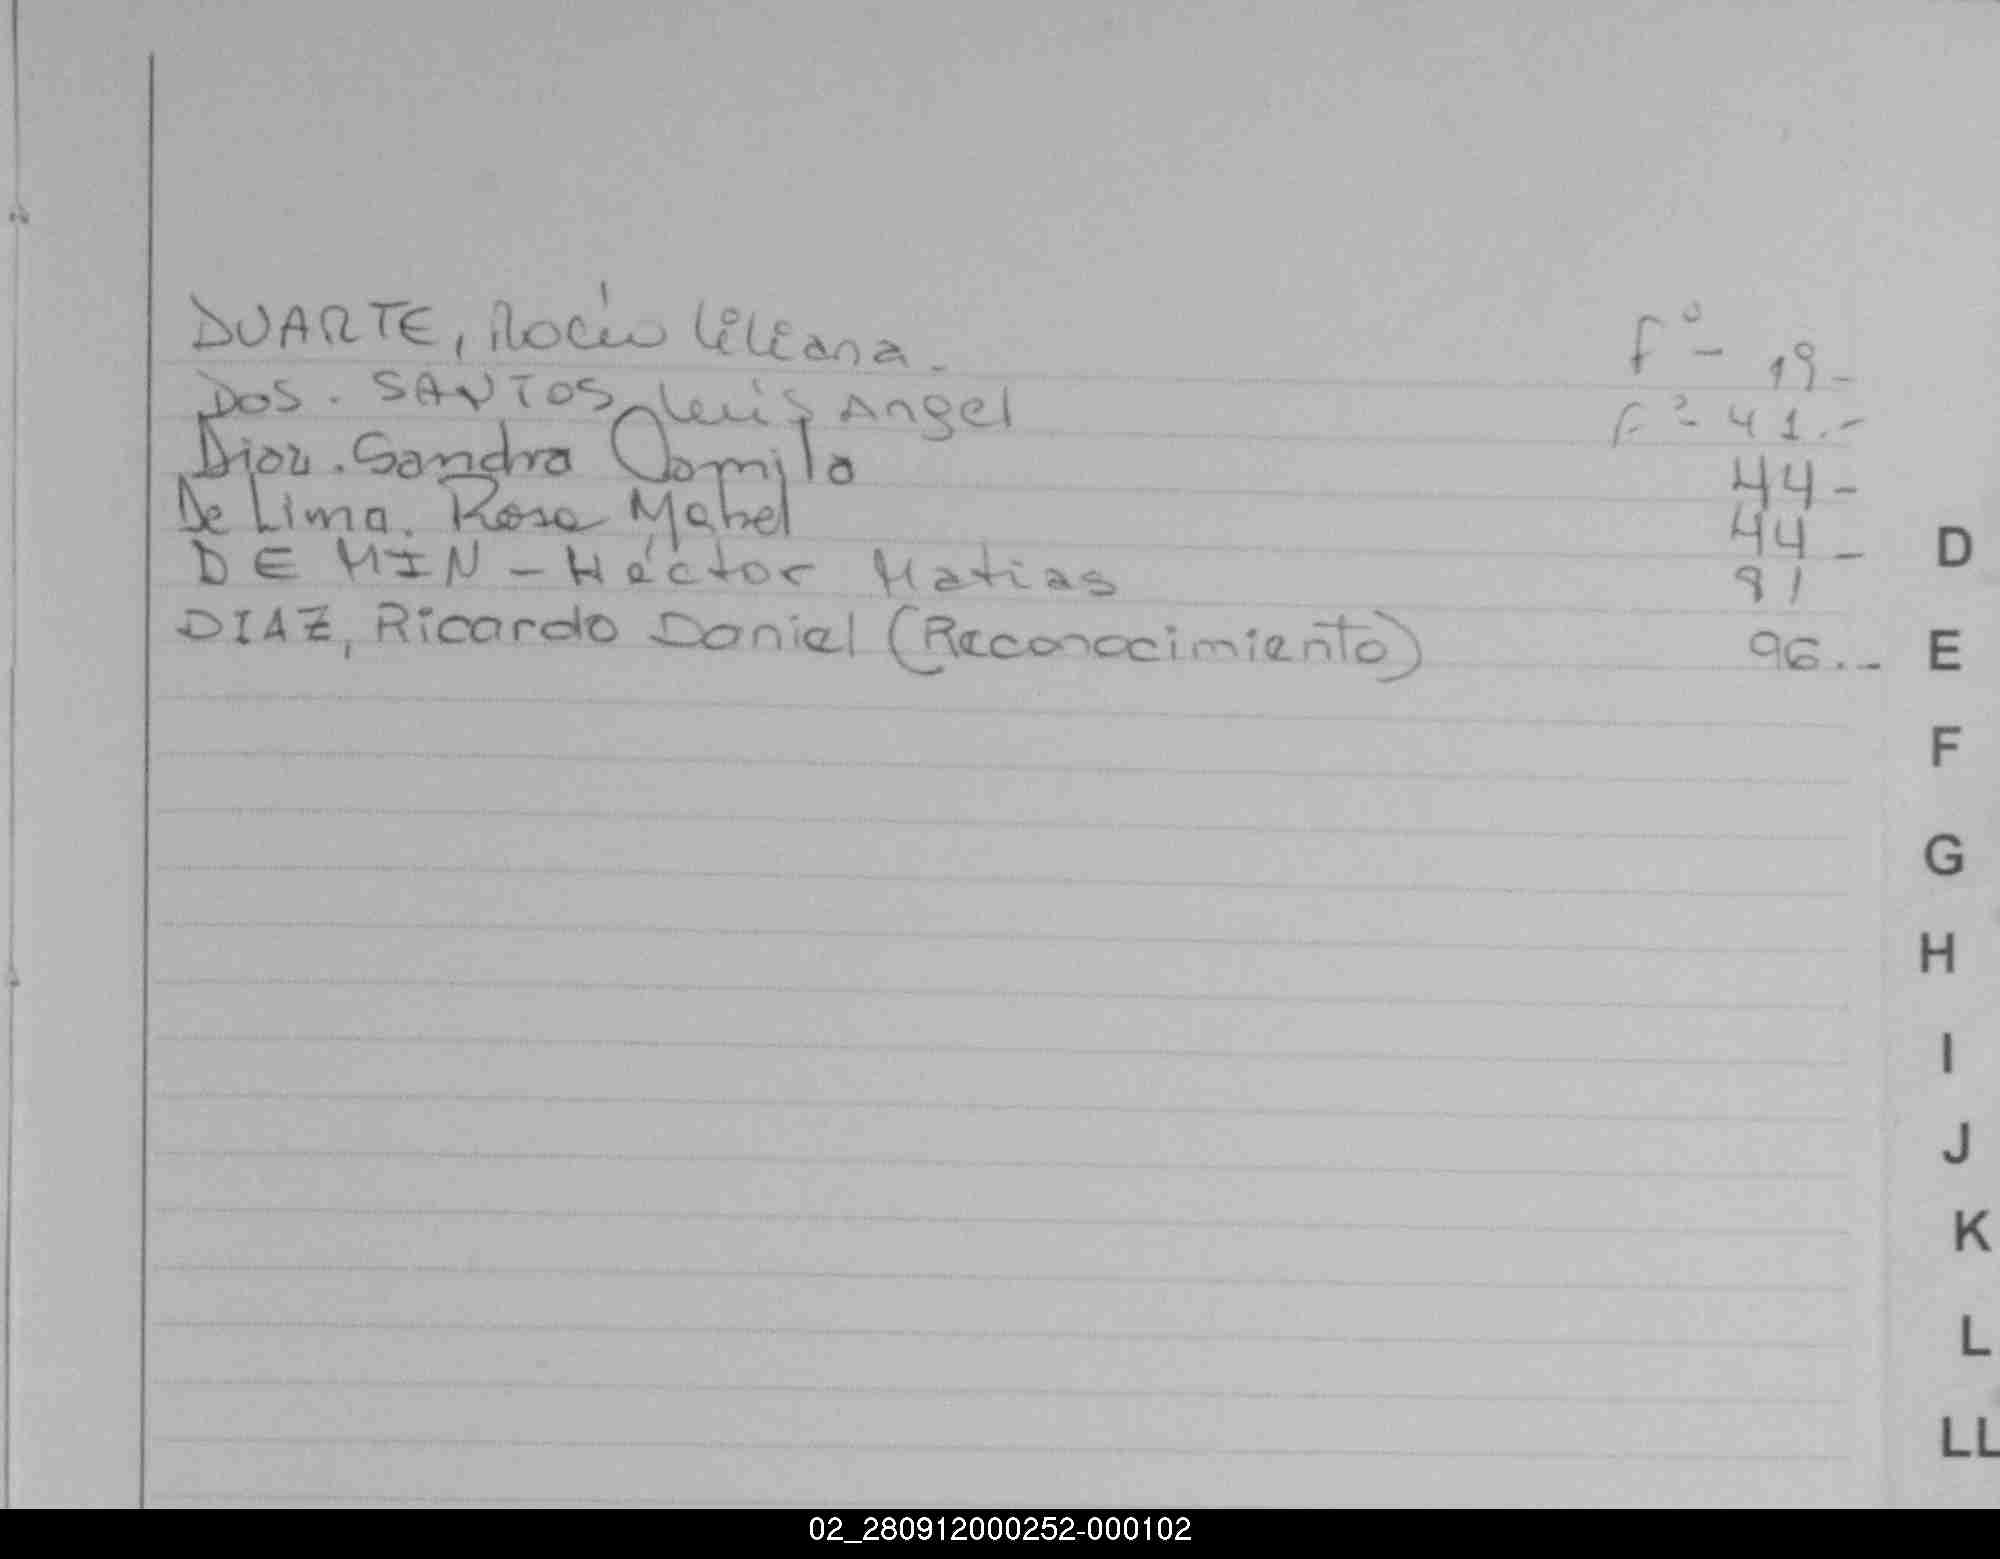 DUARTE, Rocío Liliana_ Fº- 19_
DOS. SANTOS Luis Angel Fº- 41.-
Diaz. Sandra Camila 44-
De Lima. Rosa Mabel 44_
DE MIN - Héctor Matias 81
DIAZ, Ricardo Daniel (Reconocimiento) 96.._
D
E
F
G
H
I
J
K
L
LL
02_280912000252-000102